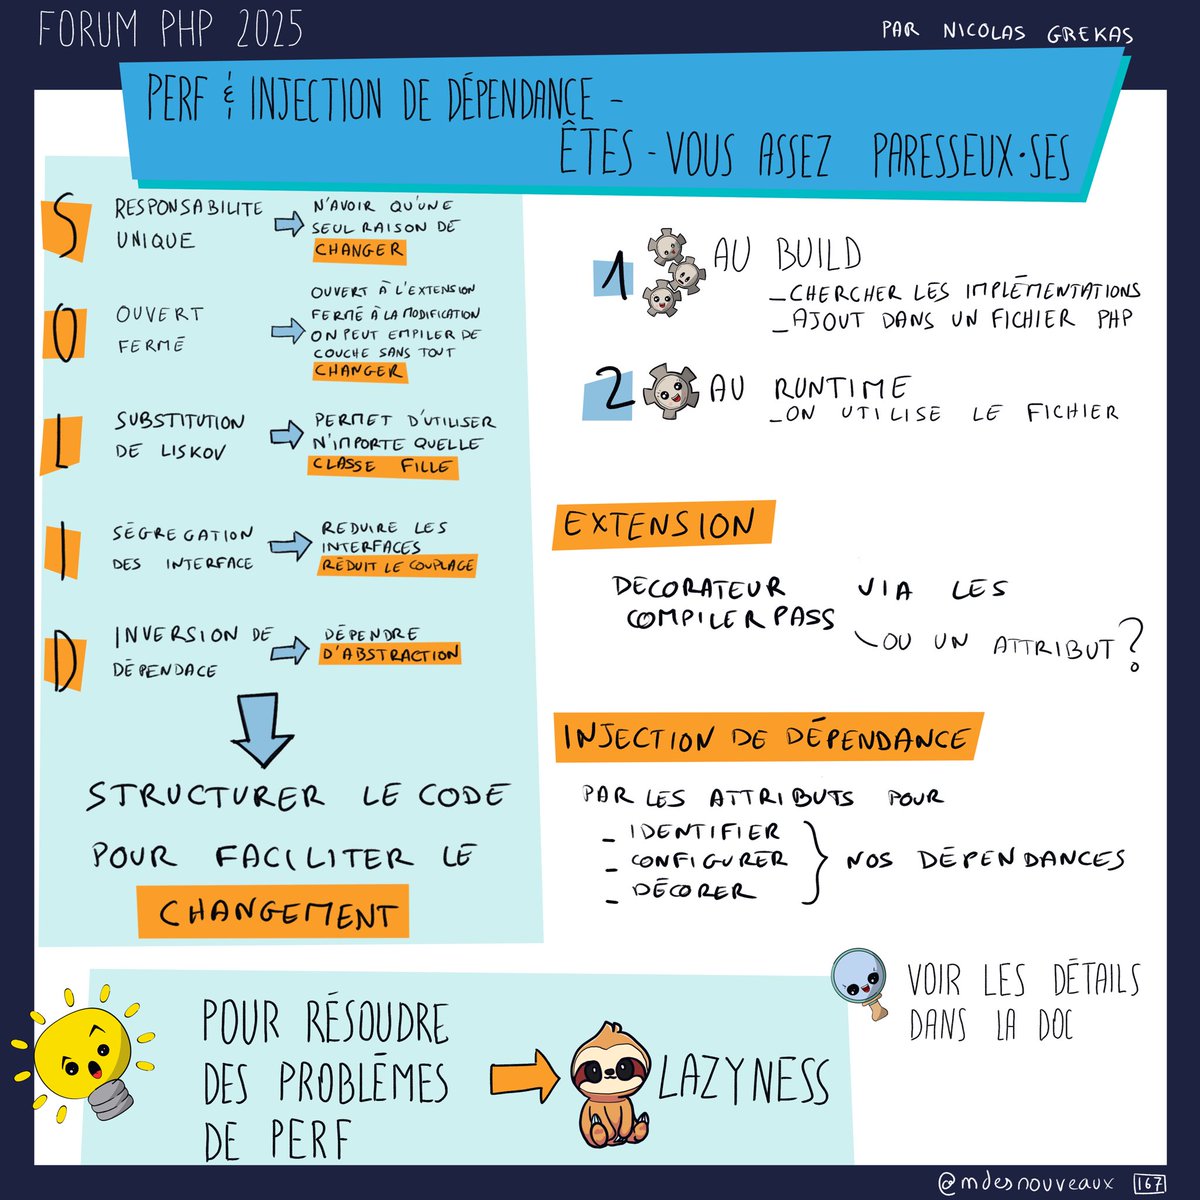 FORUM PHP 2025
PAR NICOLAS GREKAS
PERF & INJECTION DE DÉPENDANCE -
ÊTES-VOUS ASSEZ PARESSEUX·SES
S
RESPONSABILITE
UNIQUE
N'AVOIR QU'UNE
SEUL RAISON DE
CHANGER
O
OUVERT
FERMÉ
OUVERT À L'EXTENSION
FERMÉ À LA MODIFICATION
ON PEUT EMPILER DE
COUCHE SANS TOUT
CHANGER
L
SUBSTITUTION
DE LISKOV
PERMET D'UTILISER
N'IMPORTE QUELLE
CLASSE FILLE
I
SÉGREGATION
DES INTERFACE
REDUIRE LES
INTERFACES
RÉDUIT LE COUPLAGE
D
INVERSION DE
DÉPENDACE
DÉPENDRE
D'ABSTRACTION
STRUCTURER LE CODE
POUR FACILITER LE
CHANGEMENT
1 AU BUILD
- CHERCHER LES IMPLÉMENTATIONS
- AJOUT DANS UN FICHIER PHP
2 AU RUNTIME
- ON UTILISE LE FICHIER
EXTENSION
DECORATEUR VIA LES
COMPILERPASS
OU UN ATTRIBUT ?
INJECTION DE DÉPENDANCE
PAR LES ATTRIBUTS POUR
- IDENTIFIER
- CONFIGURER
- DÉCORER
NOS DÉPENDANCES
VOIR LES DÉTAILS
DANS LA DOC
POUR RÉSOUDRE
DES PROBLÉMES
DE PERF
LAZYNESS
@mdesnouveaux 167